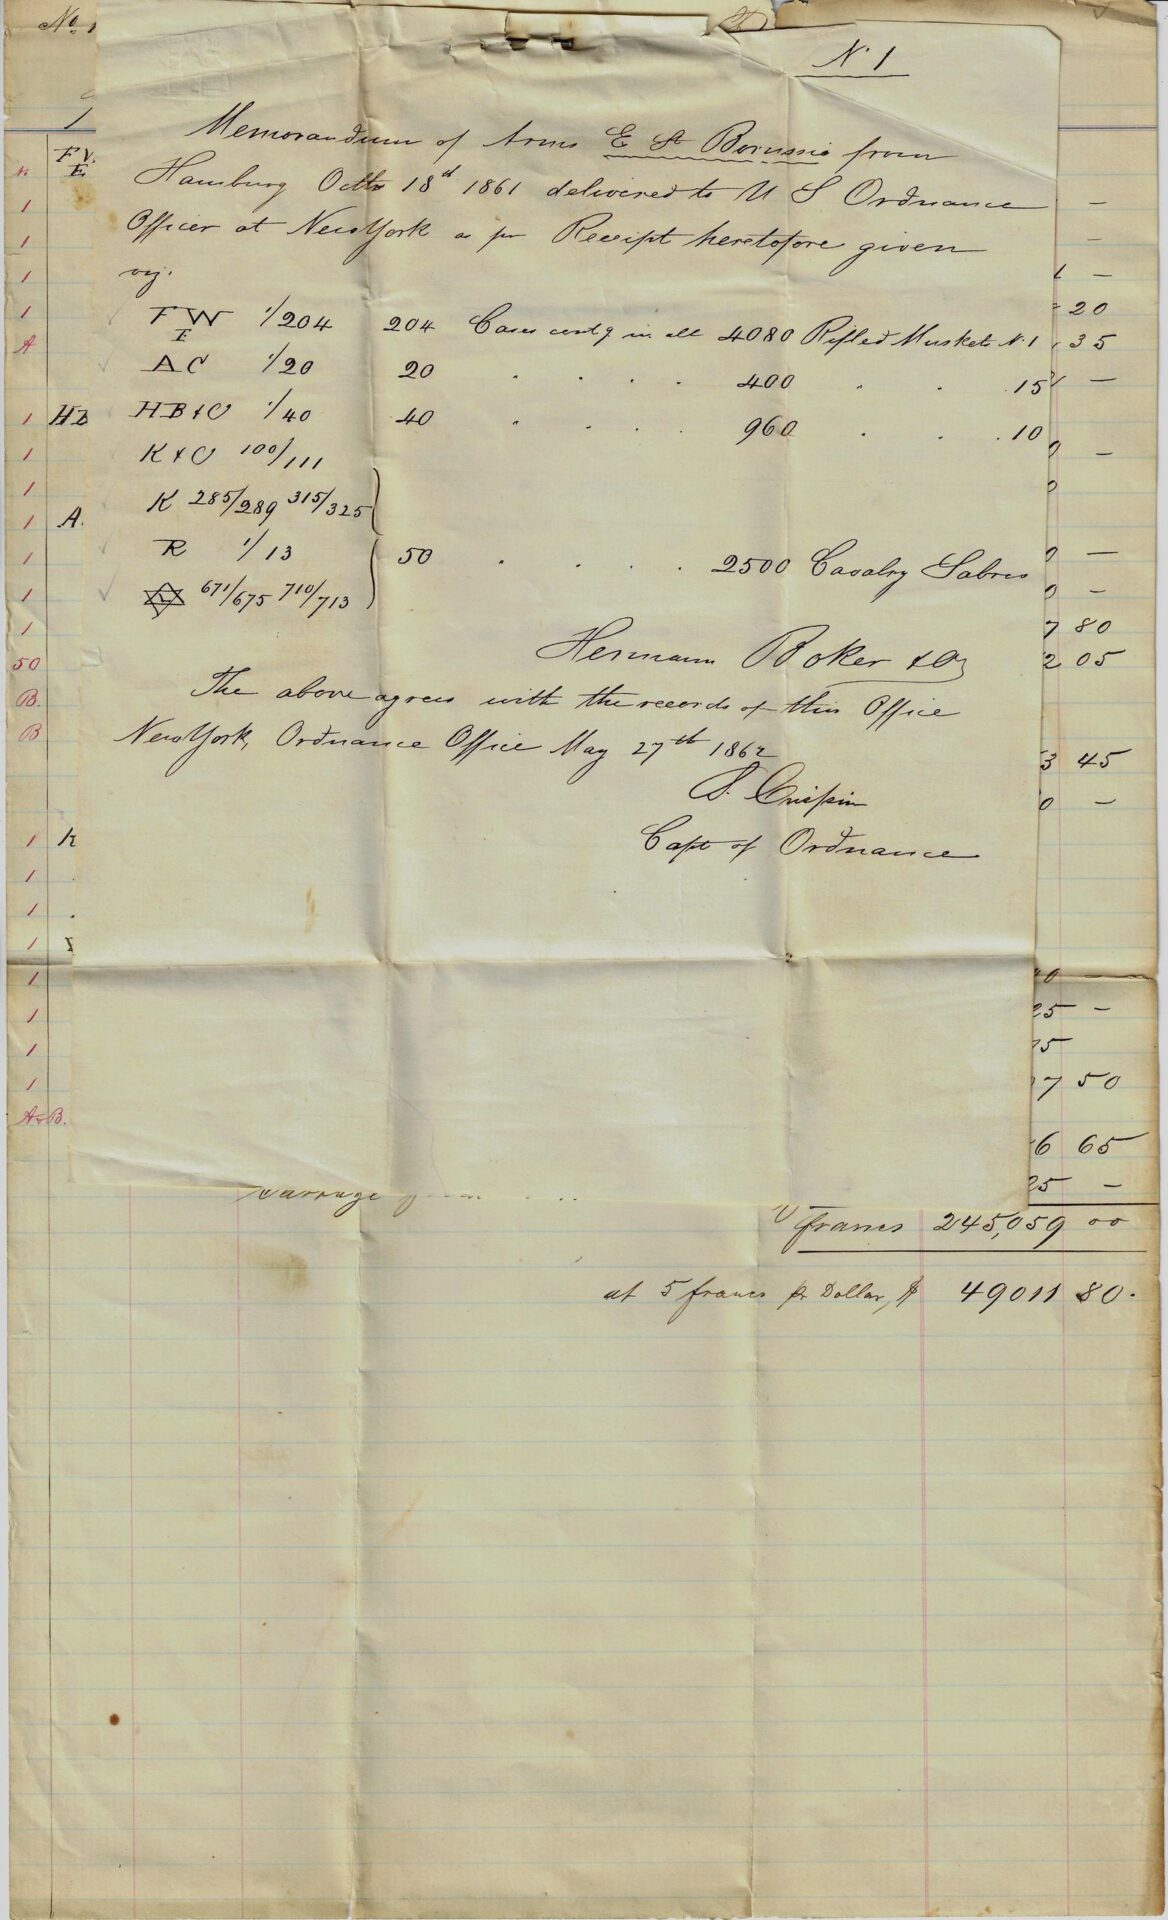 No
N. 1
1
Memorandum of Arms E St Borussia from
Hamburg Octbr 18d 1861 delivered to U S Ordnance
Officer at New York as per Receipt heretofore given
viz.
F W E 1/204 204 Cases contg in all 4080 Rifled Muskets N. 1
A C 1/20 20 . . . . 400 . . . 15
H B & C 1/40 40 . . . . 960 . . . 10
K & C 100/111
K 285/289 315/325
R 1/13 50 . . . . 2500 Cavalry Sabres
671/675 710/713
Hermann Boker & Co
The above agrees with the records of this Office
New York, Ordnance Office May 27th 1862
S. Crispin
Capt of Ordnance
F
E
1
1
1
1
A
1 HB
1
1
1 A.
1
1
1
50
B.
B
1 K
1
1
1
1
1
1
1
A&B.
20
35
80
05
45
50
65
francs 245,059 00
at 5 francs pr Dollar, $ 49011 80.